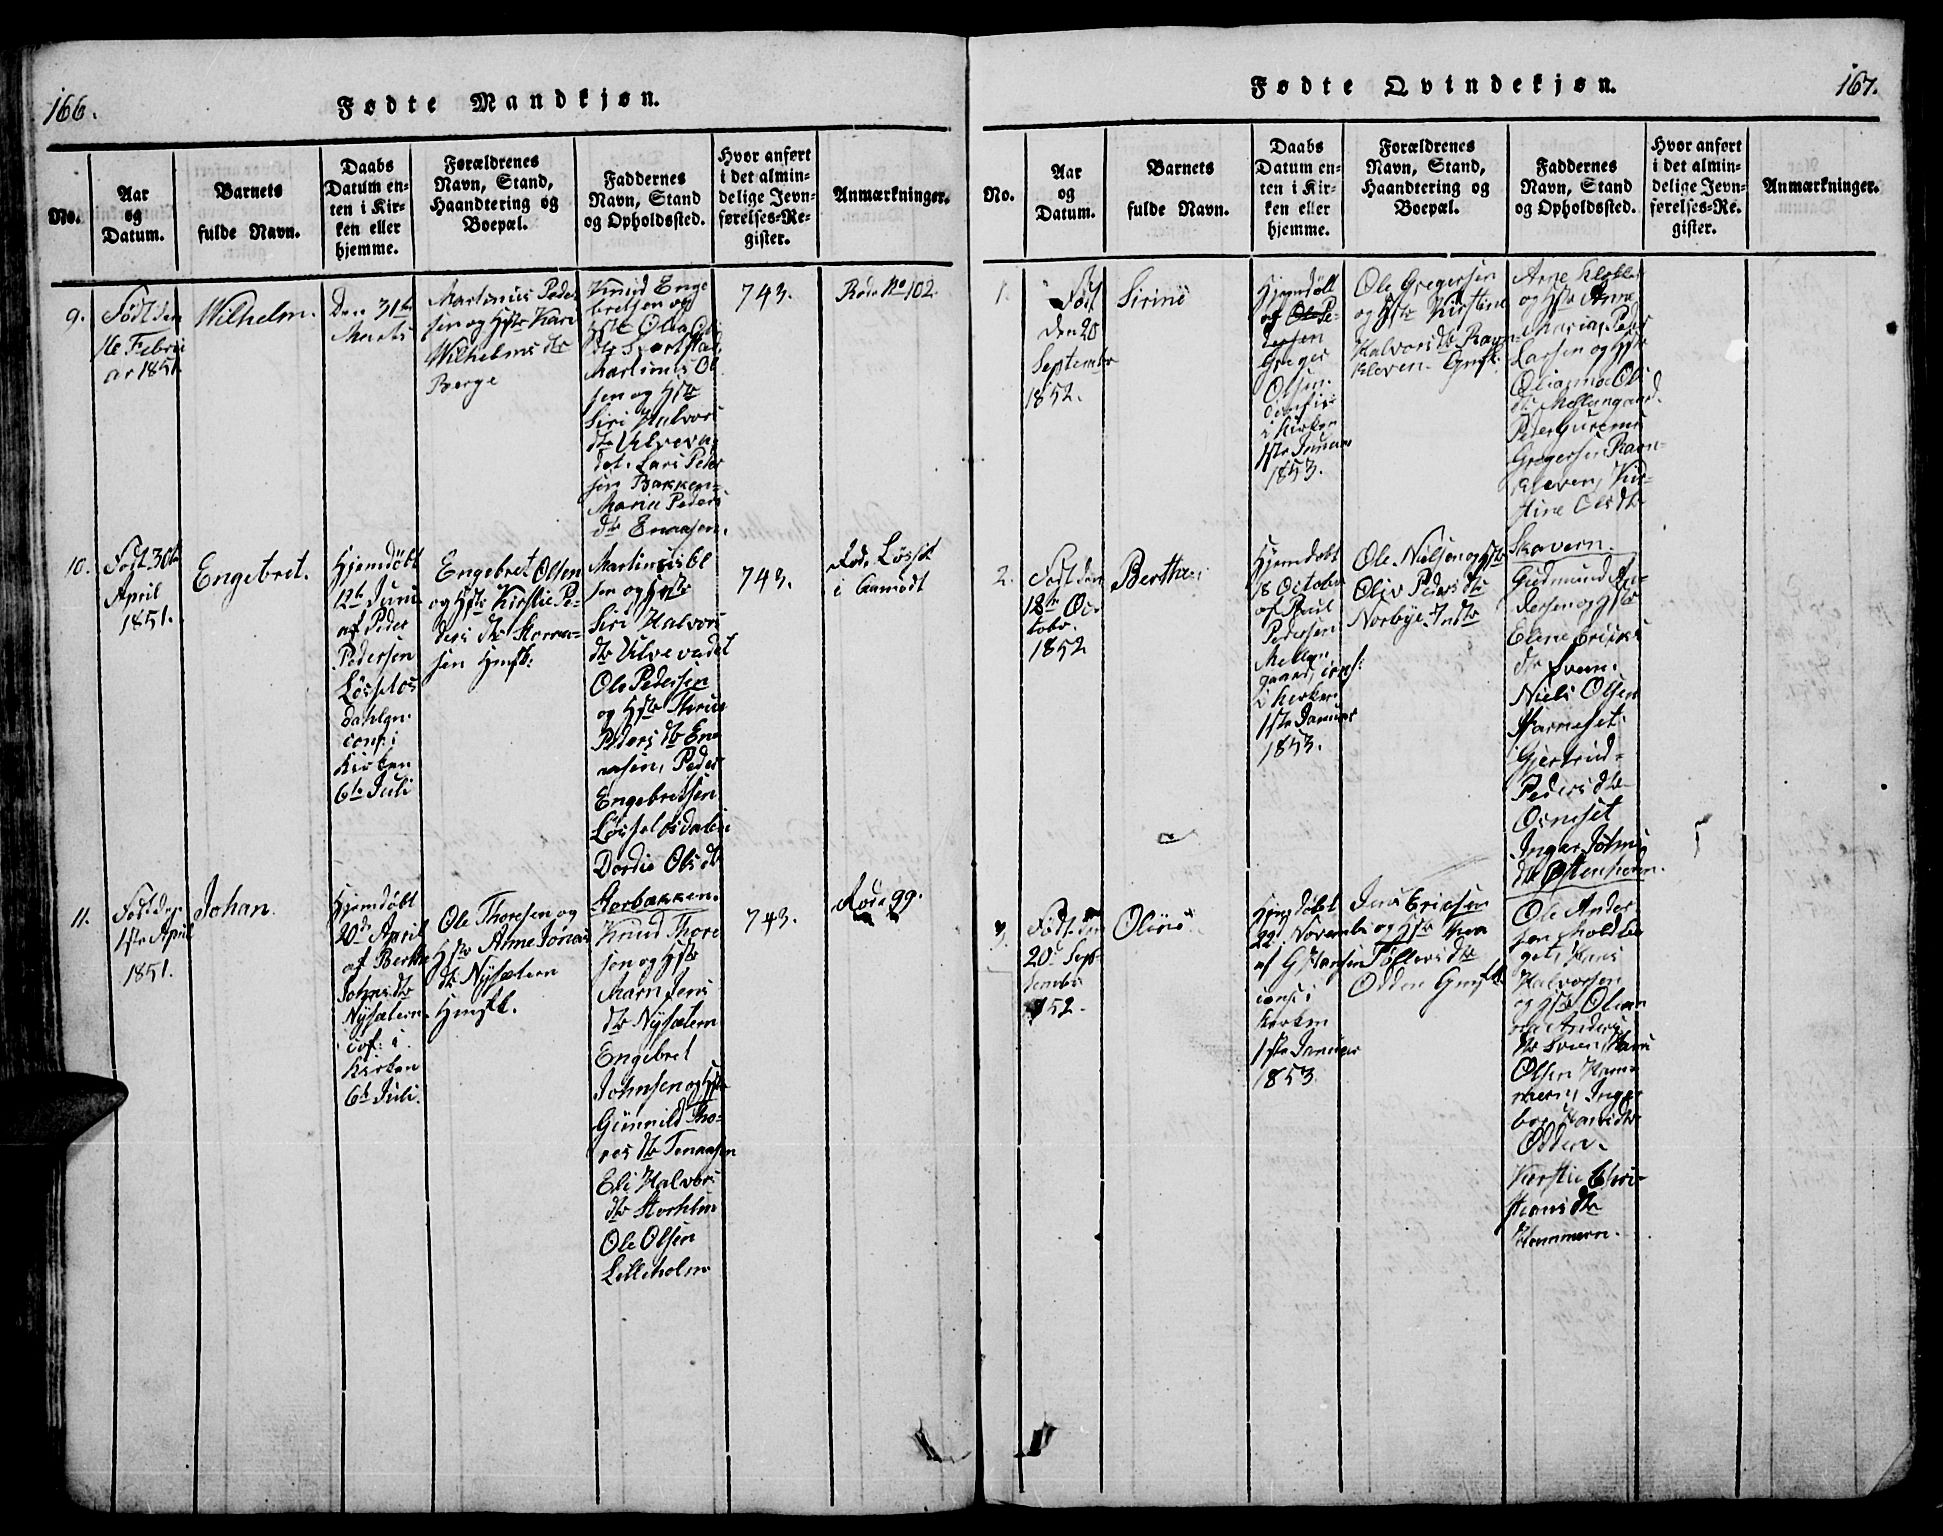 166.
Fødte Mandkjøn.
No.
Aar
og
Datum.
Barnets
fulde Navn.
Daabs
Datum en-
ten i Kir-
ken eller
hjemme.
Forældrenes
Navn, Stand,
Haandtering og
Boepæl.
Faddernes
Navn, Stand
og Opholdssted.
Hvor anført
i det almin-
delige Jevn-
førelses-Re-
gister.
Anmærkninger.
9.
Født den
16 Febru
ar 1851.
Wilhelm.
Den 31te
Marts
Martinus Peder
sen og Hstr Kari
Wilhelms dtr
Berge
Knud Enge
bretsen og
Hstr Olia
Martinus Ol
sen og Hstr
Siri Halvors
dtr Ulveva
det. Lars Peder
sen Bakken
Marie Peders
dtr Enaasen.
743.
Rode No 102.
10.
Født 30te
April
1851.
Engebret.
Hjemdöbt
12te Juni
af Peder
Pedersen
Lössetos
dahlen.
conf. i
Kirken
6te Juli
Engebret Olsen
og Hstr Kirstie Pe-
ders dtr Storaa-
sen Hmfk:
Martinus Ol
sen og Hstr
Siri Halvors
dtr Ulvevadet
Ole Pedersen
og Hstr Thrue
Peders dtr En
aasen, Peder
Engebretsen
Lössetosdalen
Dordie Ols dtr
Storbakken.
743.
Rode Lösset
i Aamodt
11.
Født den
1ste April
1851.
Johan.
Hjemdöbt
20de April
af Berthe
Johns dtr
Nysætern.
cof. i
Kirken
6te Juli.
Ole Thoresen og
Hstr Anne Jonas
dtr Nysætern
Hmfk.
Knud Thore
sen og Hstr
Marn Jens
dtr Nysætern
Engebret
Johnsen og Hstr
Gunnild Tho-
res dtr Tenaasen
Eli Halvors
dtr Storholm
Ole Olsen
Lilleholm
743.
Rode 99.
167.
Fødte Qvindekjøn.
No.
Aar
og
Datum.
Barnets
fulde Navn.
Daabs
Datum en-
ten i Kir-
ken eller
hjemme.
Forældrenes
Navn, Stand,
Haandtering og
Boepæl.
Faddernes
Navn, Stand
og Opholdssted.
Hvor anført
i det almin-
delige Jevn-
førelses-Re.
gister.
Anmærkninger.
1.
Født
den 20
Septembr
1852.
Sirine
Hjemdöbt
af Ole Pe-
dersen
Greger
Olsen.
i Kirken
1ste Januar
1853.
Ole Gregersen
og Hstr Kirstine
Halvors dtr Ravn
kleven. Gmfk.
Arne
og Hstr Anne
Maria, Peder
Larsen og Hstr
Olianna Ols
dtr Mellumgaard.
Peder
Gregersen Ravn-
kleven, Kir-
stine Ols dtr
Skavern.
2.
Født den
18de Oc
tobr.
1852
Berthe
Hjemdöbt
18 October
af Poul
Pedersen
Mellum
gaard, conf:
i Kirken
1ste Januar
1853.
Ole Nielsen og Hstr
Oliv Peders dtr
Norbye. Indtr
Gudmund An-
dersen og Hstr
Elene Eriks
dtr Sveen.
Niels Olsen
Skarneset.
Gjertrud
Peders dtr
Osneset
Ingar Johns
dtr Østenholm.
3.
Født den
20de Sep-
tember
1852.
Oline
Hjemdöbt
22de Novembr
af G Hansen
conf: i
Kirken
1ste Januar
1853.
Jens Ericsen
og Hstr
Tollevs dtr
Odden Gmfk
Ole Ander
sen
Hans
Halvorsen
og Hstr Olean
na Anders
dtr Sveen, Hans
Olsen Ham-
mern, Inge
bor Hans dtr
Odden.
Kirstie Chri-
stians dtr
Hammern.